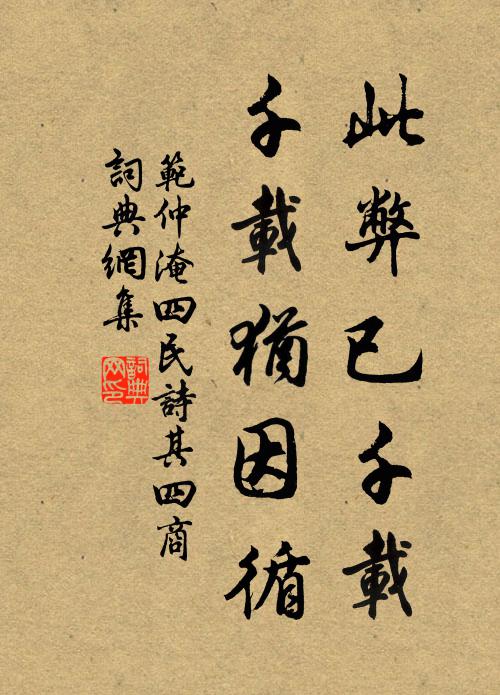 此弊已千載
千載猶因循
範仲淹四民詩其四商
詞典網集
詞典
网印